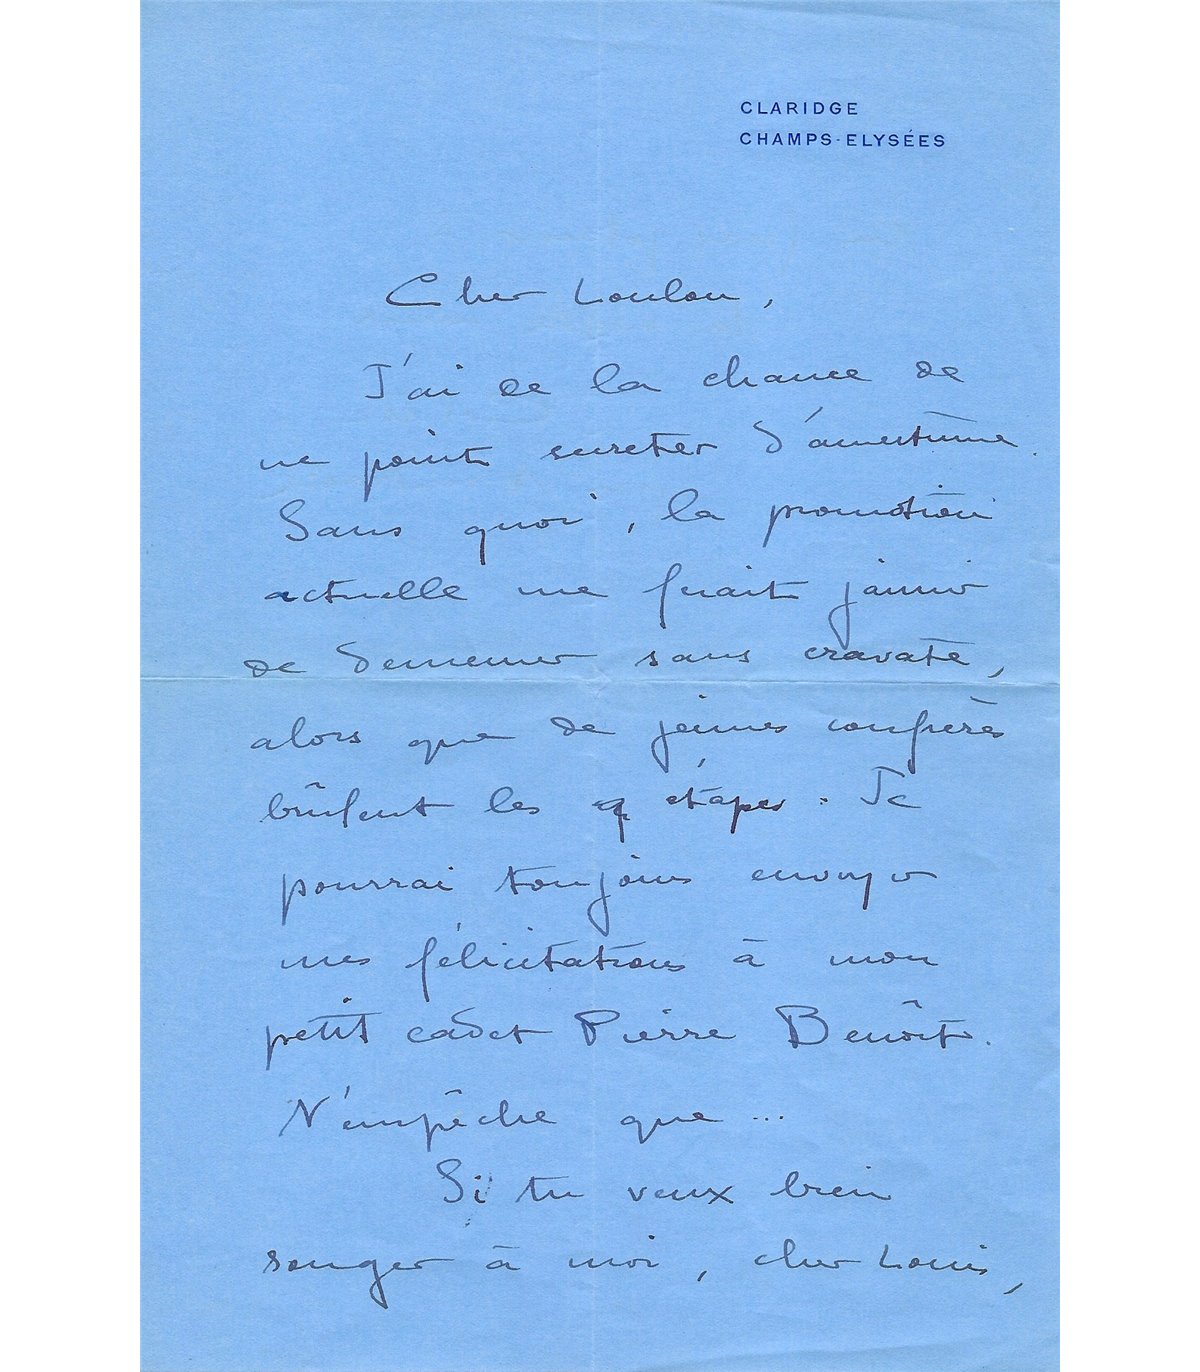 CLARIDGE
CHAMPS-ELYSÉES
Cher Loulou,
J'ai de la chance de
ne point secréter d'amertume.
Sans quoi, la promotion
actuelle me ferait gémir
de demeurer sans cravate,
alors que de jeunes confrères
brûlent les étapes. Je
pourrai toujours envoyer
mes félicitations à mon
petit cadet Pierre Benoit.
N'empêche que ...
Si tu veux bien
songer à moi, cher Louis,